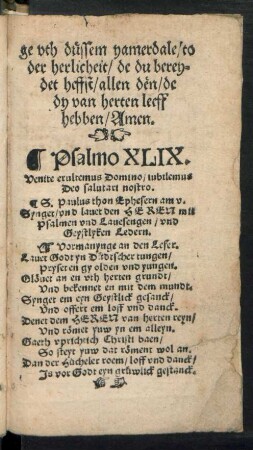 ge vth düssem yamerdale/to
der herlicheit/ de du berey-
det heffst/allen dën/de
dy van herten leeff
hebben/Amen.
¶ Psalmo XLIX.
Venite exultemus Domino, iubilemus
Deo salutari nostro.
¶ S. Paulus thon Ephesern am v.
Synget/vnd lauet den HEREN mit
Psalmen vnd Lauesengen / vnd
Geystlyken Ledern.
¶ Vormanynge an den Leser.
Lauet Godt yn Düdescher tungen/
Pryset en gy olden vnd yungen.
Glöuet an en vth herten grundt/
Vnd bekennet en mit dem mundt.
Synget em eyn Geystlick gesanck/
Vnd offert em loff vnd danck.
Denet dem HEREN van herten reyn/
Vnd römet yuw yn em alleyn.
Gaeth vprichtich Christi baen/
So steyt yuw dat röment wol an.
Dan der Hücheler roem/ loff vnd danck/
Is vor Godt eyn grüwlick gestanck.